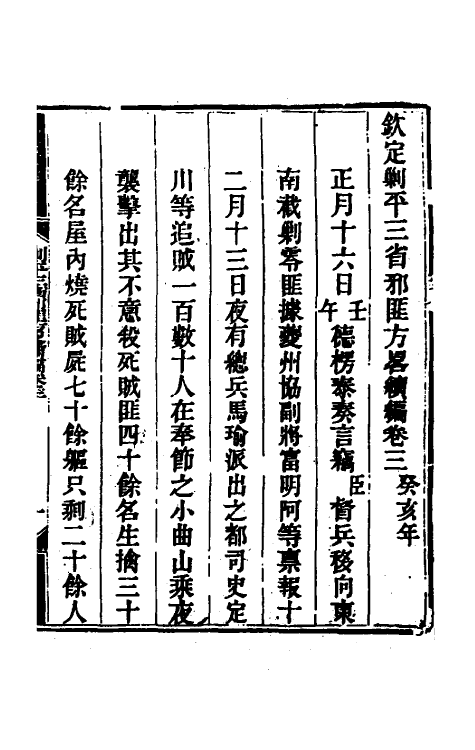 欽定剿平三省邪匪方畧續編卷三 癸亥年
正月十六日壬午德楞泰奏言竊臣督兵移向東
南截剿零匪據夔州協副將富明阿等禀報十
二月十三日夜有總兵馬瑜派出之都司史定
川等追賊一百數十人在奉節之小曲山乘夜
襲擊出其不意殺死賊匪四十餘名生擒三十
餘名屋內燒死賊屍七十餘軀只剩二十餘人